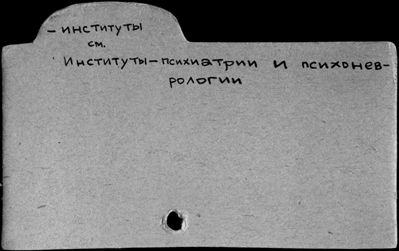 – институты
см.
Институты – психиатрии и психонев-
рологии